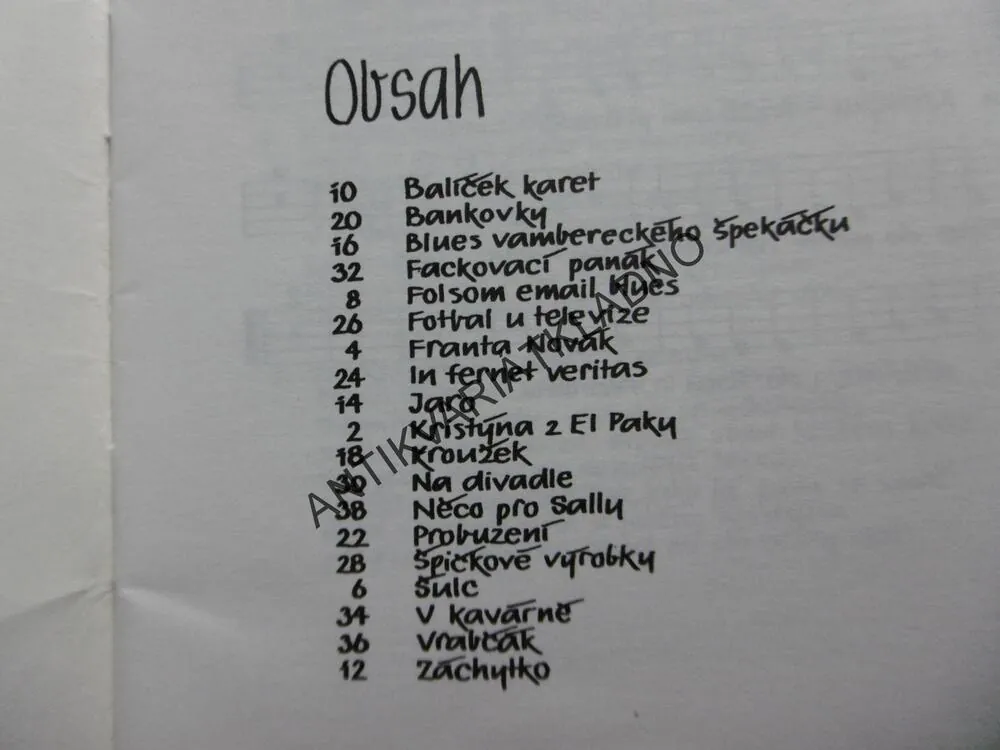 Obsah
10 Balíček karet
20 Bankovky
16 Blues vambereckého špekáčku
32 Fackovací panák
8 Folsom email blues
26 Fotbal u televize
4 Franta Novák
24 In fernet veritas
14 Jaro
2 Kristýna z El Paky
18 Kroužek
30 Na divadle
38 Něco pro Sally
22 Probuzení
28 Špičkové výrobky
6 Šulc
34 V kavárně
36 Vrabčák
12 Záchytko
ANTIKVARIAT KLADNO